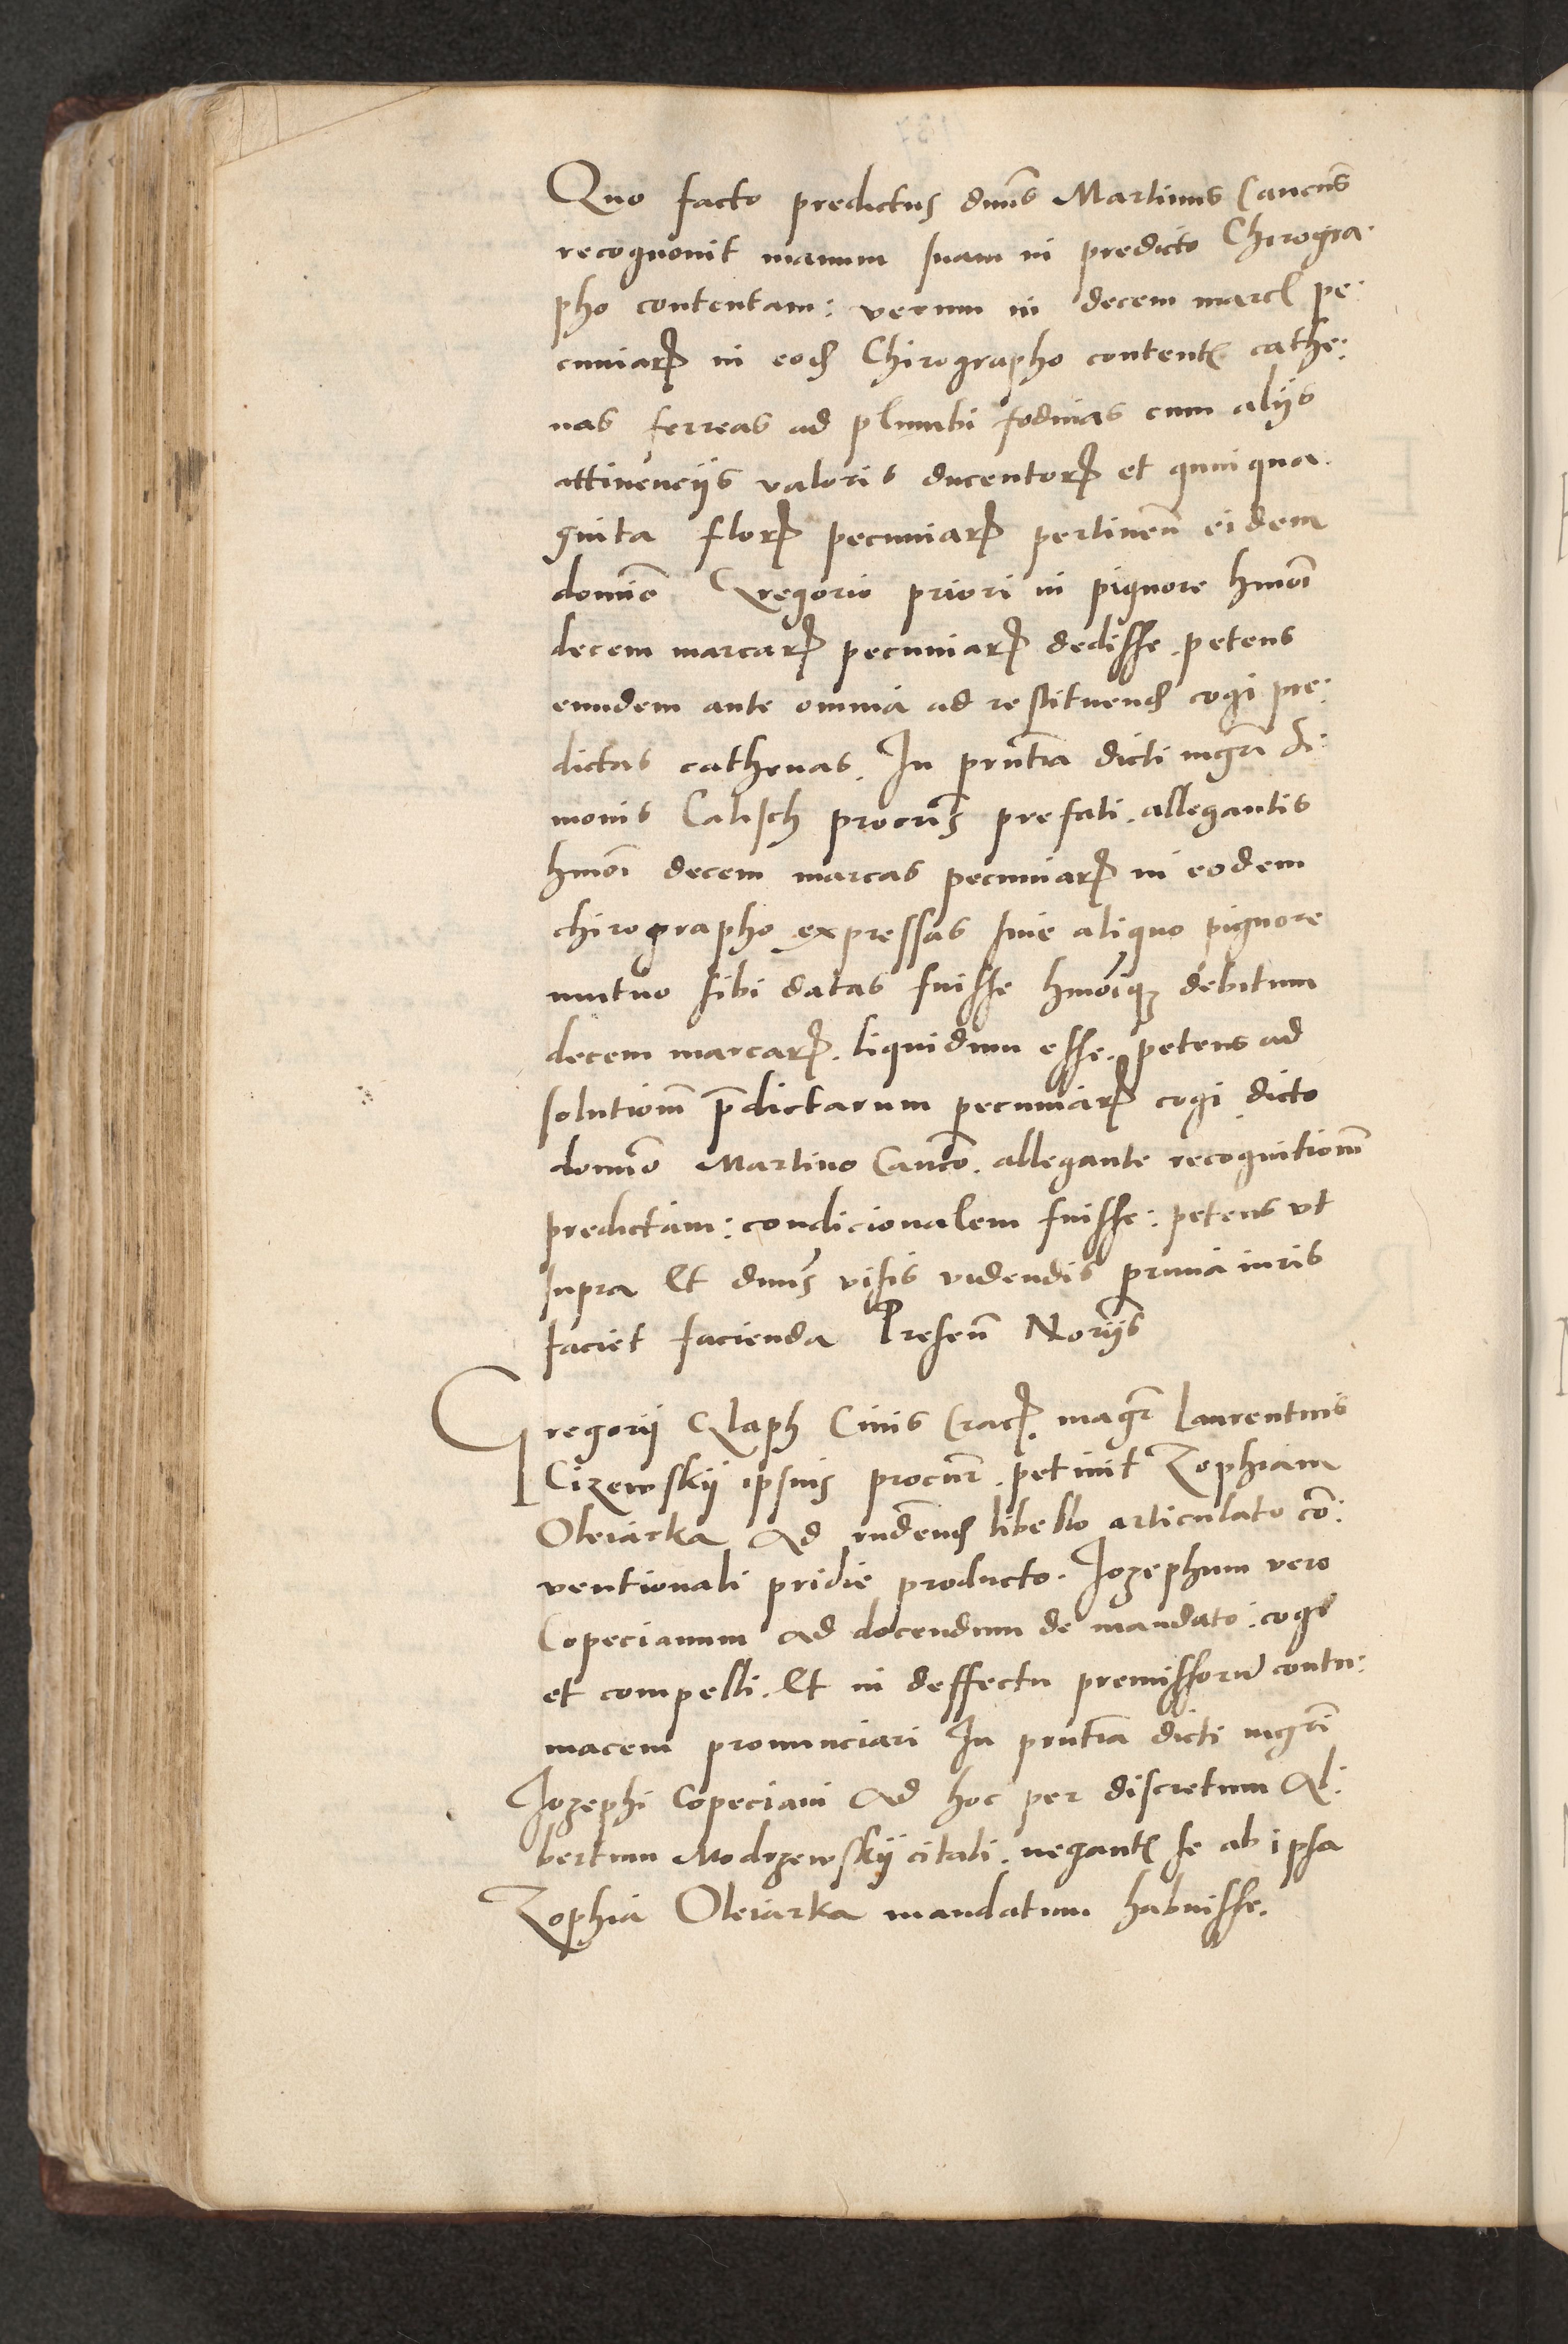 Quo facto predictus dnus Martinus Cancus
recognouit manum suam in predicto Chirogra.
pho contentam: verum in decem marcis pe:
cuniarꝝ in eodē Chirographo content cathe:
nas ferreas ad plumbi fodinas cum alijs
attinencijs valoris ducentorꝝ et quinqua.
ginta florꝝ pecuniarꝝ pertinen̄ eidem
domīo Gregorio priori in pignore hmōi
decem marcarꝝ pecuniarꝝ dedisse. petens
eundem ante omnia ad restituend cogi pre:
dictas cathenas. In pn̄tia dicti mgr̄i Si:
monis Calisch procrīs prefati. allegantis
hmōi decem marcas pecuniarꝝ in eodem
chirographo expressas sine aliquo pignore
mutuo sibi datas fuisse hmōiqꝫ debitum
decem marcarꝝ. liquidum esse. petens ad
solutionē p̄dictarum pecuniarꝝ cogi dicto
domino Martino Canco. allegante recognitionē
predictam: condicionalem fuisse: petens vt
supra Et dnus visis videndis primia iuris
faciet facienda Presen̄ Norijs
Gregorij Claph Ciuis Cracꝝ. magr̄ Laurentius
Cizewskij ipsius procur̄. petiuit Zophiam
Oleiarka Ad rn̄dend libello articulato cō:
uentionali pridie producto. Jozephum vero
Copecianum Ad docendum de mandato: cogi
et compelli. Et in deffectu premissorū contu:
macem pronunciari In pn̄tia dicti mgr̄i
Jozephi Copeciani Ad hoc per discretum Al:
bertum Modrzewskij citati. negant se ab ipsa
Zophia Oleiarka mandatum habuisse.